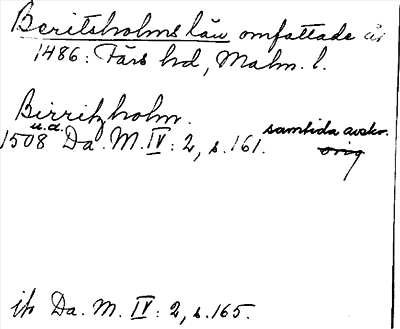 Beritsholms län omfattade år
1486: Färs hd, Malm. l.
Birritzholm.
u.d.
1508 Da. M. IV: 2, s. 161. samtida avskr.
orig
ib Da. M. IV: 2, s. 165.